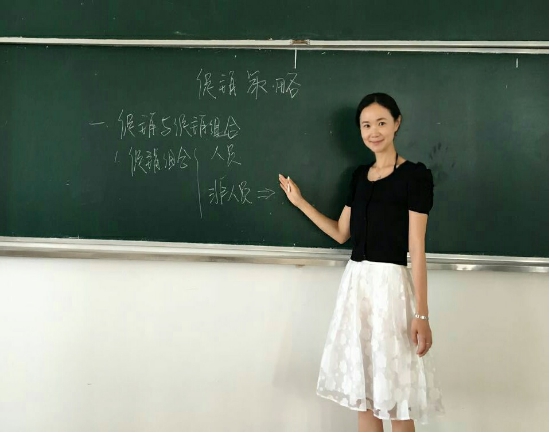 促销策略
一 促销与促销组合
1 促销组合 { 人员
非人员 ⇒